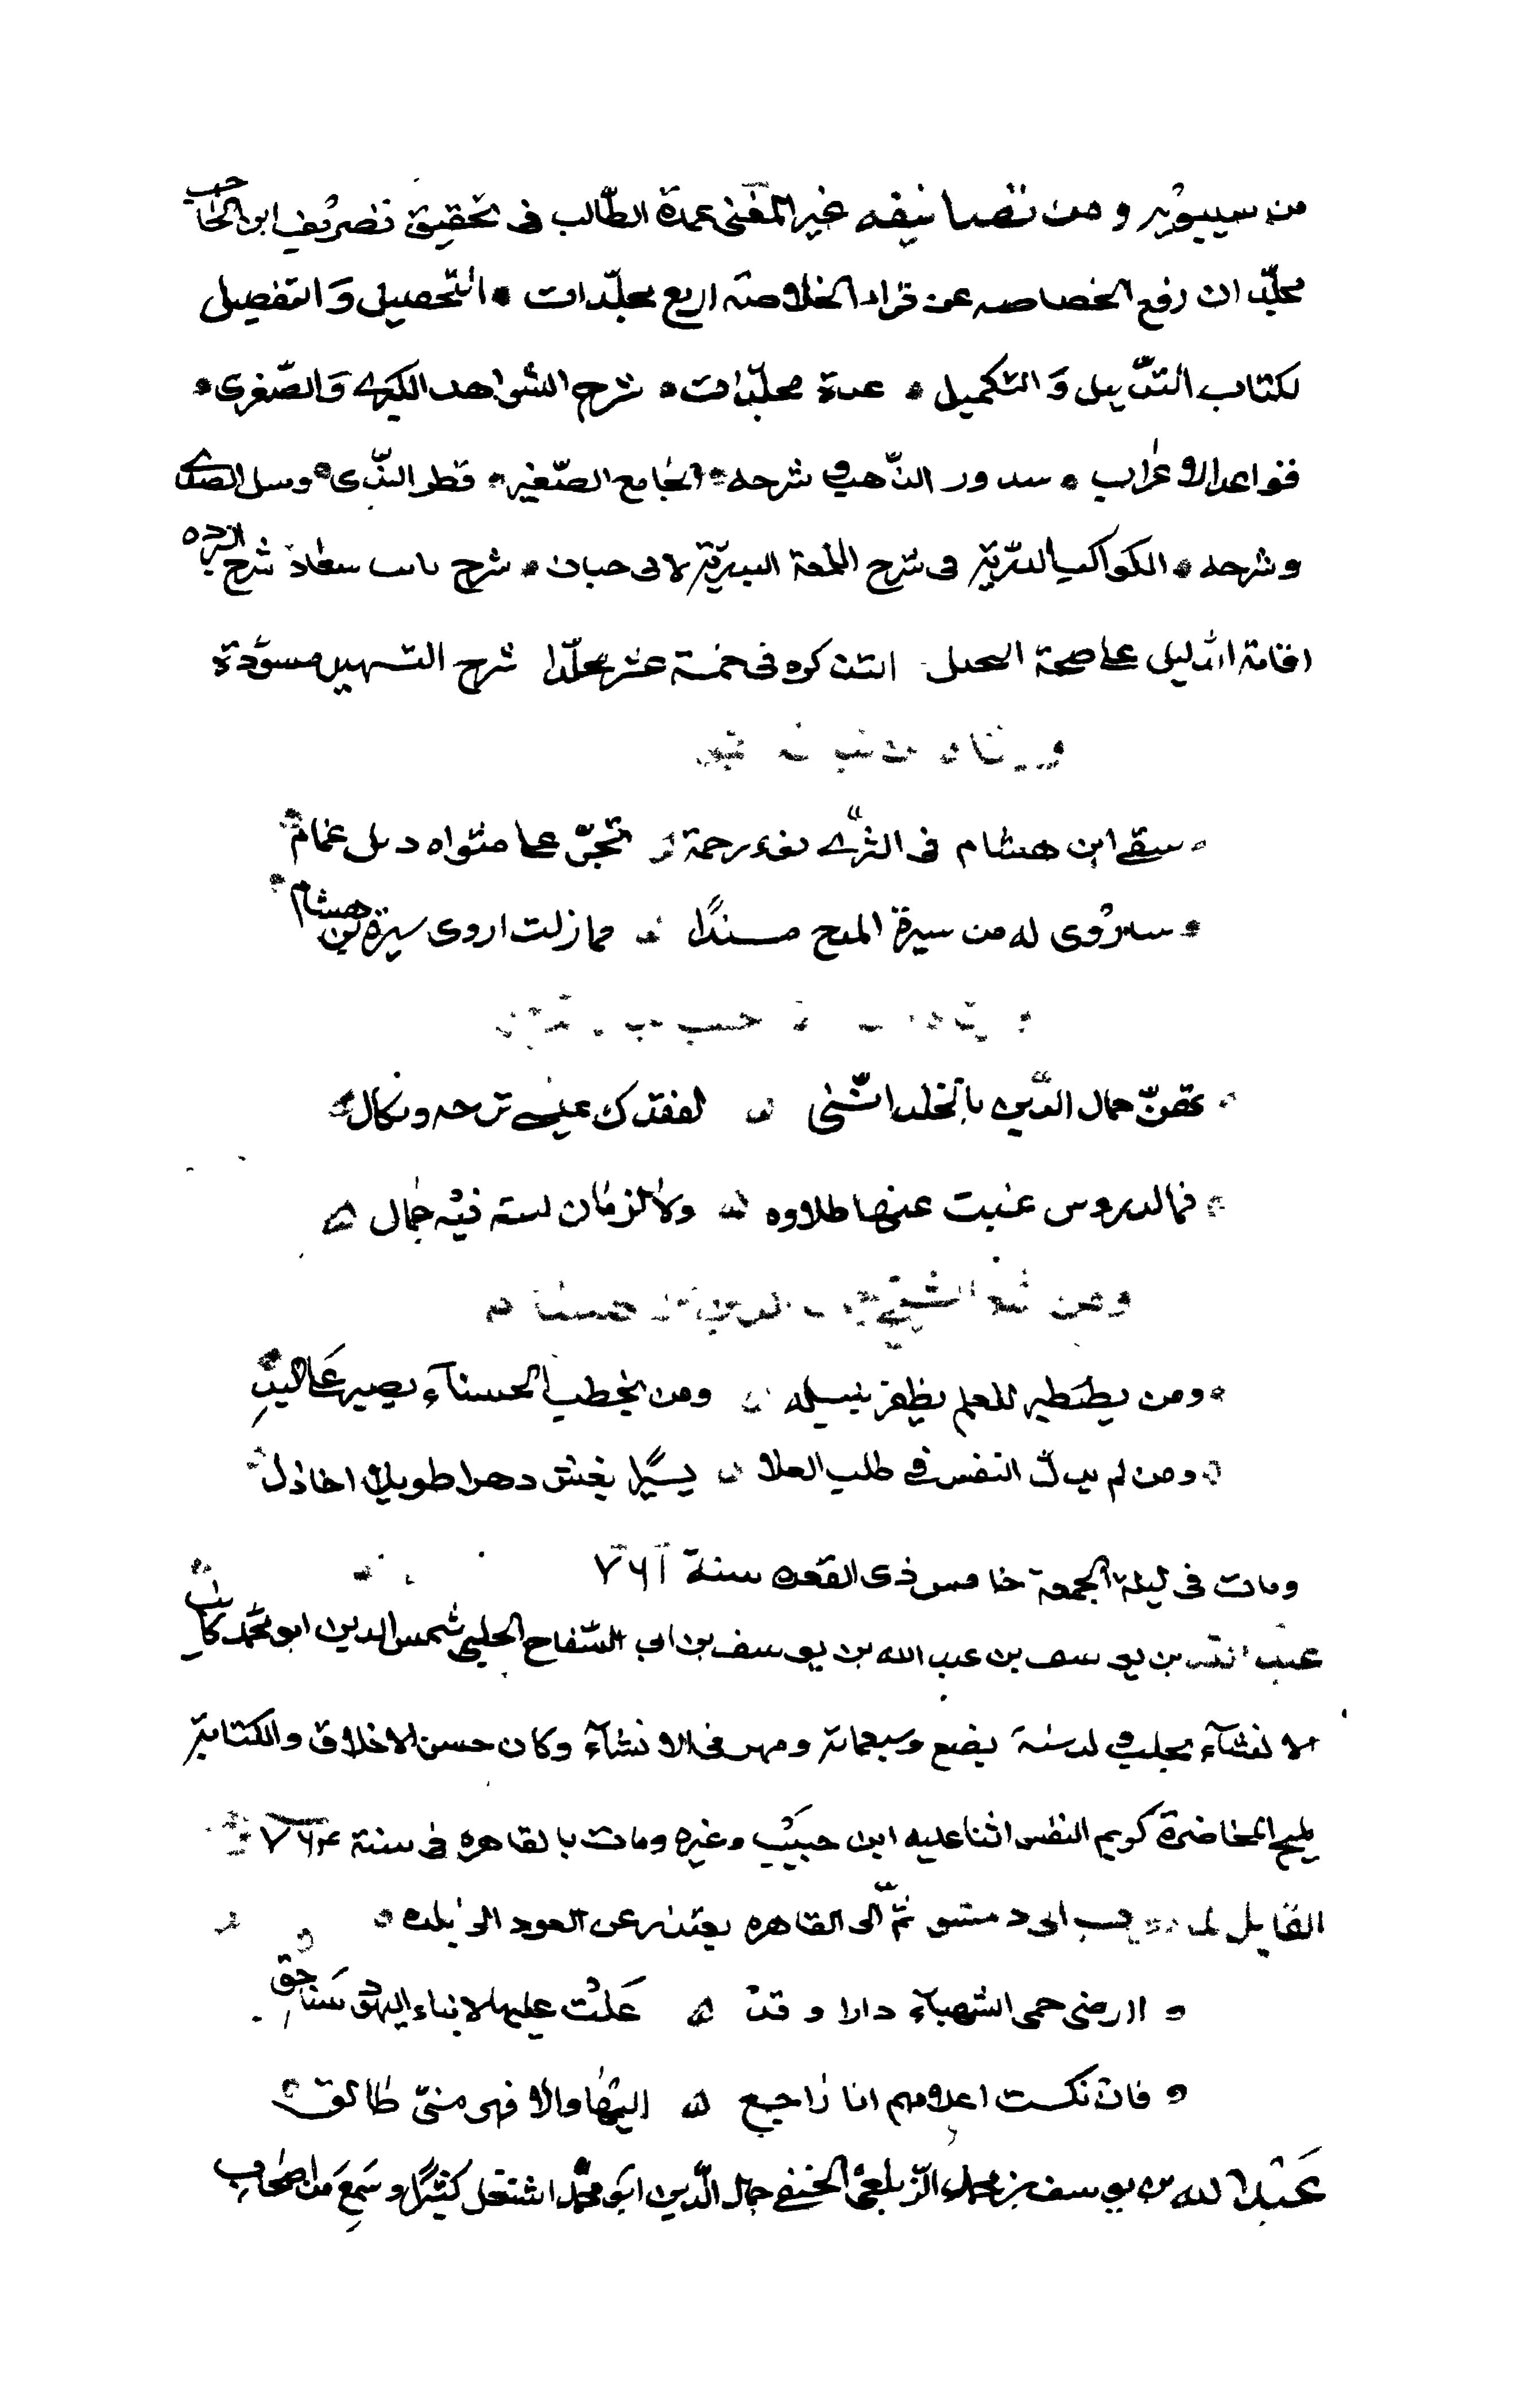 من سيبويه ومن تصانيفه غير المغنى عمدة الطّالب فى تحقيق تصريف ابن الحاجب
مجلّدان رفع الخصاصه عن قراء الخلاصة اربع مجلّدات ۰ التّحصيل وَالتفصيل
لكتاب التذّييل وَالتكميل ۰ عدة مجلّدات ۰ شرح الشواهد الكبرى وَالصّغرى ۰
قواعد الاعراب ۰ شدور الذّهب وشرحه ۰ الجامع الصّغير ۰ قطر النّدى ۰ وبل الصدى
وشرحه ۰ الكواكب الدرّية فى شرح اللمحة البدريّة لابى حيان ۰ شرح بانت سعاد شرح البرده
اقامة الدليل على صحة التحيل التذكره فى خمسة عشر مجلّدا شرح التسهيل مسوّدة
۰ سقى ابن هشام فى الثرّى نوء رحمة تجرّ على مثواه ديل غمام
۰ ساروى له من سيرة المدح مسندًا فما زلت اروى سيرة ابن هشام
۰ تهنّ جمال الدّين بالخلد انّنى لفقدك عيشى ترحه ونكال
۰ فما لدروس غبت عنها طلاوه ولا لزمان لست فيه جمال
ومن الشيخ الدين هشام
۰ ومن يصطبر للعلم يظفر بنيله ومن يخطب الحسناء يصبر على البذل
۰ ومن لم يذلّ النفس فى طلب العلا يسيرا يعش دهرا طويلا اخا ذل
ومات فى ليلة الجمعة خامس ذى القعده سنة ٧٦١
عبد الله بن يوسف بن عبد الله بن يوسف بن ابى السّفاح الحلبى شمس الدين ابو محمّد كاتب
الانشآء بحلب ولد سنة بضع وسبعمائة ومهر فى الانشآء وكان حسن الاخلاق والكتابة
مليح المحاضرة كريم النفس اثنا عليه ابن حبيب وغيره ومات بالقاهره فى سنة ٧٦٤
القايل لما الى دمشق ثمّ الى القاهره يعتذر عن العود الى بلده ۰
۰ اارضى حمى الشهبآء دارا وقد علت عليها لابناء اليهود سناجق
۰ فان نكست اعلامهم انا راجع اليها والا فهى منىّ طالق
عَبْد الله بن يوسف بن محمد الزّيلعى الحنفى جمال الدّين ابو محمّد اشتغل كثيرًا وسَمِعَ من اصحاب